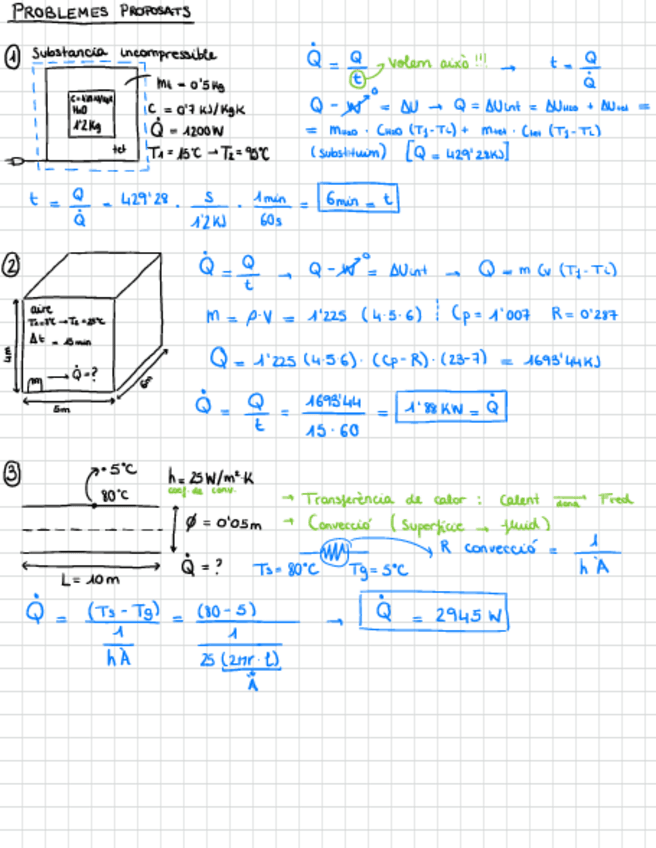 PROBLEMES PROPOSATS
① Substancia incompressible
H2O
1'2 Kg
tet
mt = 0'5 Kg
C = 0'7 KJ/KgK
Q̇ = 1200W
T1 = 15°C → T2 = 95°C
Q̇ = Q/t → volem això !!! → t = Q/Q̇
Q - W⁰ = ΔU → Q = ΔUint = ΔUH2O + ΔUtet =
= mH2O · CH2O (Tf - Ti) + mtet · Ctet (Tf - Ti)
(substituim) [Q = 429'28KJ]
t = Q/Q̇ = 429'28 · s/1'2KJ · 1min/60s = 6min = t
②
aire
T1=7°C → T2=23°C
Δt = 15min
m → Q̇ = ?
4m
5m
6m
Q̇ = Q/t → Q - W⁰ = ΔUint → Q = m Cv (Tf - Ti)
m = ρ·V = 1'225 (4·5·6) ¦ Cp = 1'007 R = 0'287
Q = 1'225 (4·5·6) · (Cp - R) · (23-7) = 1693'44KJ
Q̇ = Q/t = 1693'44/15·60 = 1'88 KW = Q̇
③
5°C
80°C
L = 10m
h = 25 W/m²·K
coef. de conv.
Ø = 0'05m
Q̇ = ?
→ Transferència de calor : Calent dona→ Fred
→ Convecció (Superfície → fluid)
Ts = 80°C Tg = 5°C → R convecció = 1/hA
Q̇ = (Ts - Tg)/(1/hA) = (80-5)/(1/25(2πr·L)) → Q̇ = 2945 W
A